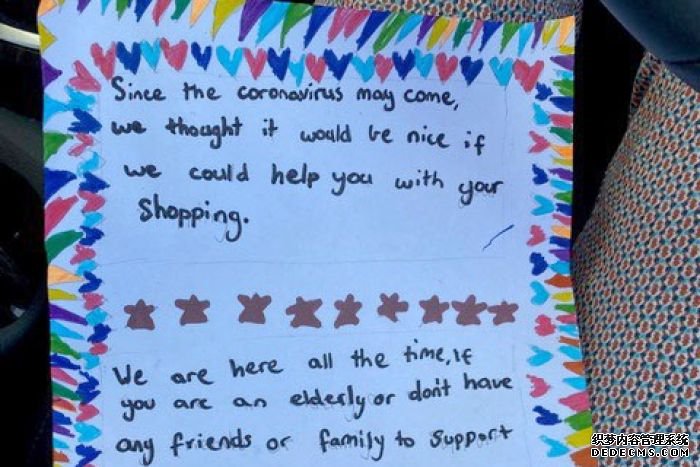 Since the coronavirus may come,
we thought it would be nice if
we could help you with your
Shopping.
We are here all the time, If
you are an elderly or don't have
any friends or family to support
织梦内容管理系统
DEDECMS.COM